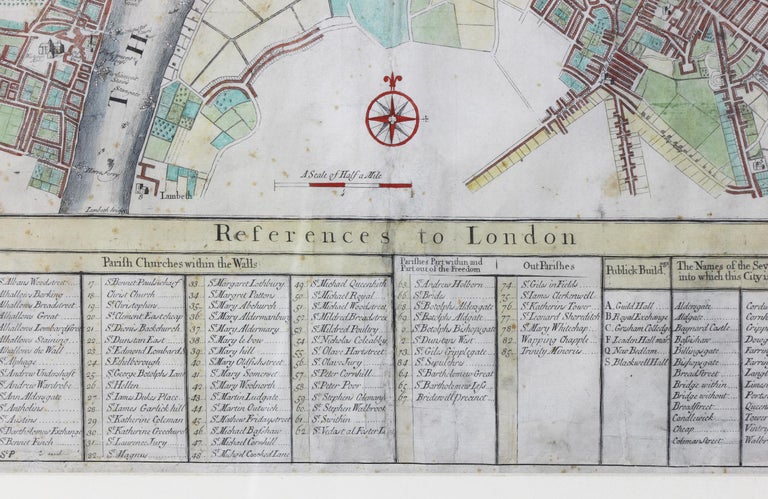 A Scale of Half a Mile
Lambeth
References to London
Parish Churches within the Walls
St. Albans Woodstreet
Alhallows Barking
Alhallows Breadstreet
Alhallows Great
Alhallows Lombardstreet
Alhallows Staining
Alhallows the Wall
St. Andrew Undershaft
St. Andrew Wardrobe
St. Ann Aldersgate
St. Antholins
St. Austins
St. Bartholomew Exchange
St. Bennet Finch
17. St. Bennet Paulswharf
18. Christ Church
19. St. Christophers
20. St. Clement Eastcheap
21. St. Dionis Backchurch
22. St. Dunstan East
23. St. Edmond Lombard S
24. St. Ethelborough
25. St. George Botolph Lane
26. St. Hellen
27. St. James Dukes Place
28. St. James Garlick hill
29. St. Katherine Coleman
30. St. Katherine Creechurch
31. St. Laurence Jury
32. St. Magnus
33. St. Margaret Lothbury
34. St. Margret Pattons
35. St. Mary Abchurch
36. St. Mary Aldermanbury
37. St. Mary Aldermary
38. St. Mary le bow
39. St. Mary hill
40. St. Mary Oldfishstreet
41. St. Mary Somerset
42. St. Mary Woolnorth
43. St. Martin Ludgate
44. St. Martin Outwich
45. St. Mathew Fridaystreet
46. St. Michael Bashaw
47. St. Michael Cornhill
48. St. Michael Crooked Lane
49. St. Michael Queenhith
50. St. Michael Royal
51. St. Michael Woodstreet
52. St. Mildred Breadstreet
53. St. Mildred Poultry
54. St. Nicholas Coleabby
55. St. Olave Hartstreet
56. St. Olave Jury
57. St. Peter Cornhill
58. St. Peter Poor
59. St. Stephens Colmanstr
60. St. Stephen Walbrook
61. St. Swithin
62. St. Vedast al. Foster Lane
Parishes Part within and
Part out of the Freedom
63. St. Andrew Holborn
66. St. Brides
68. St. Botolph Aldersgate
69. St. Botolph Aldgate
St. Botolph Bishopsgate
St. Dunstans West
73. St. Giles Cripplegate
84. St. Sepulchre
St. Bartholomew Great
St. Bartholomew Less
67. Bridewell Precinct
Out Parishes
74. St. Giles in Fields
75. St. James Clerkenwell
76. St. Katherins Tower
St. Leonard Shoreditch
St. Mary Whitechap
82. Wapping Chapple
85. Trinity Minories
Publick Buildgs.
A. Guild Hall
B. Royal Exchange
C. Gresham Colledge
F. Leaden Hall mar
Q. New Bedlam
S. Blackwell Hall
The Names of the Sev
into which this City is
Aldersgate
Aldgate
Baynard Castle
Basishaw
Billingsgate
Bishopsgate
Breadstreet
Bridge within
Bridge without
Broadstreet
Candlewick
Cheap
Colmanstreet